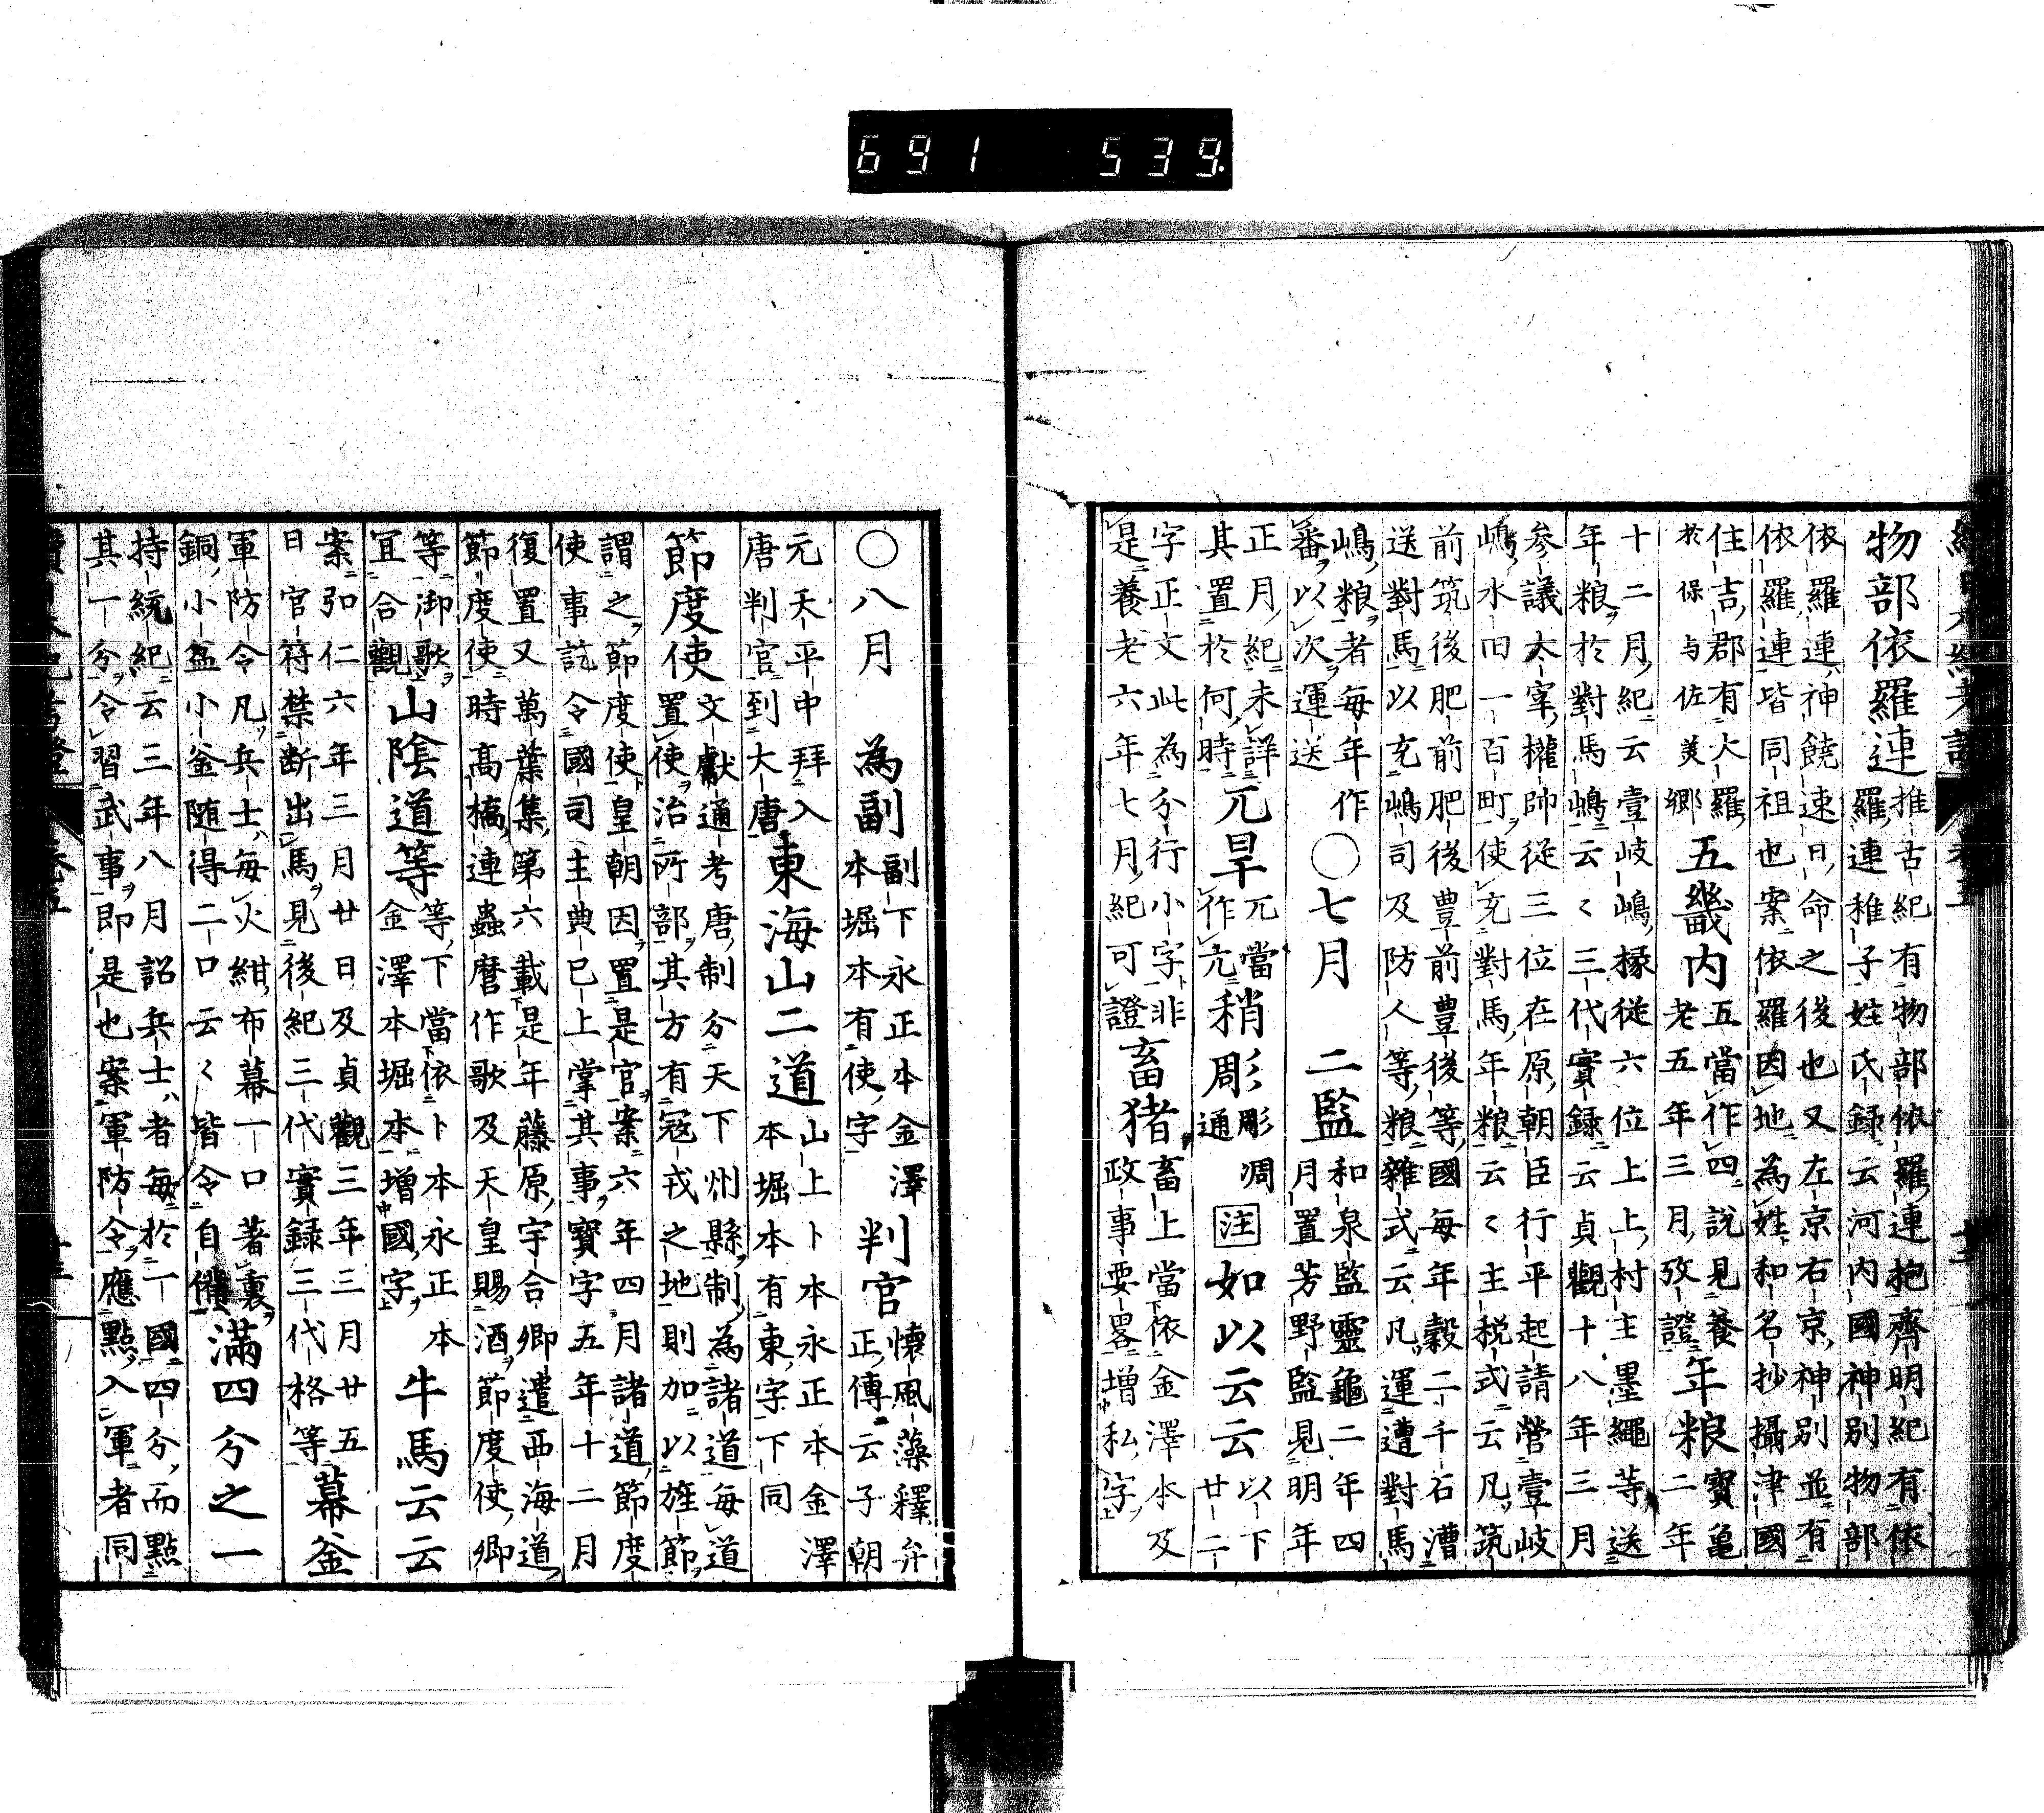 691 539
物部依羅連推古紀有物部依羅連抱齊明紀有依
羅連稚子姓氏録云河内國神別物部
依羅連神饒速日命之後也又左京右京神別並有
依羅連皆同祖也案依羅因地為姓和名抄攝津國
住吉郡有大羅
於保与佐美郷
五畿内五當作四説見養
老五年三月攷證
年粮寶亀
二年
十二月紀云壹岐嶋掾從六位上上村主墨繩等送
年粮於對馬嶋云々三代實録云貞觀十八年三月
参議大宰權帥從三位在原朝臣行平起請營壹岐
嶋水田一百町使充對馬年粮云々主税式云凡筑
前筑後肥前肥後豊前豊後等國每年穀二千石漕
送對馬以充嶋司及防人等粮雜式云凡運漕對馬
嶋粮者每年作
番以次運送
○七月 二監和泉監靈龜二年四
月置芳野監見明年
正月紀未詳
其置於何時
亢旱亢當
作亢
稍彫彫凋
通
注如以云云以下
廿二
字正文此為分行小字非
是養老六年七月紀可證
畜猪畜上當依金澤本及
政事要畧增私字
○八月 為副副下永正本金澤
本堀本有使字
判官懷風藻釋弁
正傳云子朝
元天平中拜入
唐判官到大唐
東海山二道山上卜本永正本金澤
本堀本有東字下同
節度使文獻通考唐制分天下州縣制為諸道每道
置使治所部其方有寇戎之地則加以旌節
謂之節度使皇朝因置是官案六年四月諸道節度
使事訖令國司主典已上掌其事寶字五年十二月
復置又萬葉集第六載是年藤原宇合卿遣西海道
節度使時髙橋連蟲麿作歌及天皇賜酒節度使卿
等御歌
宜合觀
山陰道等等下當依卜本永正本
金澤本堀本增國字
牛馬云云
案弘仁六年三月廿日及貞觀三年三月廿五
日官符禁断出馬見後紀三代實録三代格等
幕釜
軍防令凡兵士每火紺布幕一口著裏
銅小盆小釜随得二口云々皆令自備
滿四分之一
持統紀云三年八月詔兵士者每於一國四分而點
其一分令習武事即是也案軍防令應點入軍者同